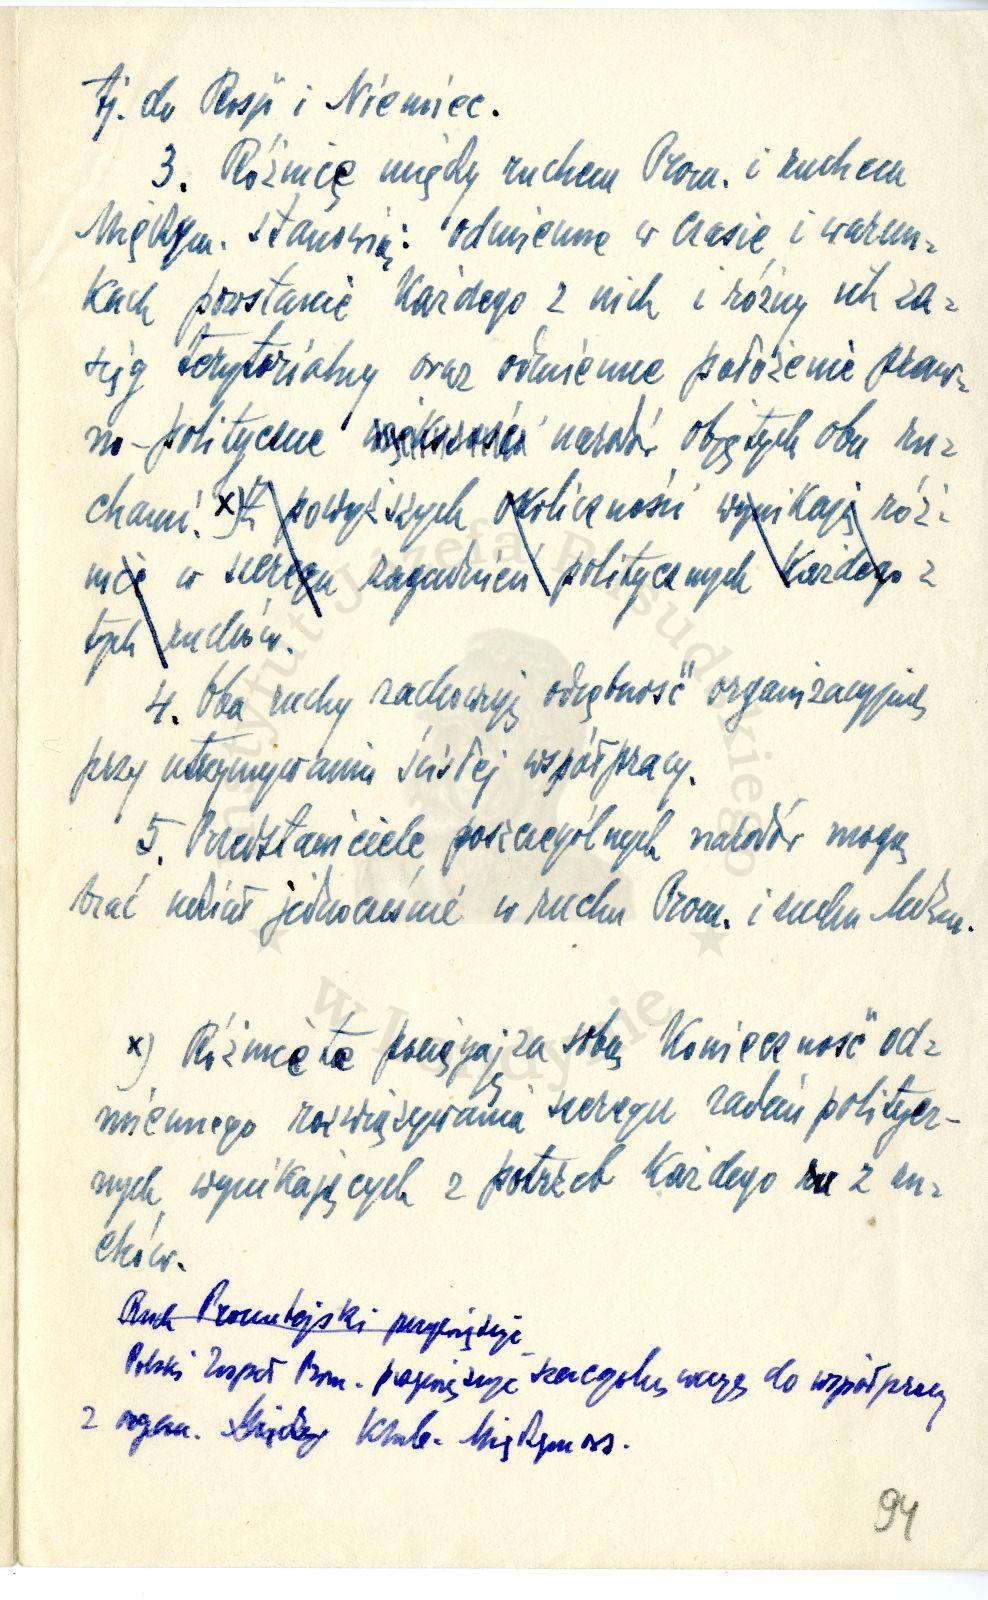 tj. do Rosji i Niemiec.
3. Różnicę między ruchem Prom. i ruchem
Międzym. stanowią: odmienne w czasie i warun-
kach powstanie każdego z nich i różny ich za-
sięg terytorialny oraz odmienne położenie praw-
no-polityczne większości narodów objętych obu ru-
chami. x) Z powyższych okoliczności wynikają róż-
nice w szeregu zagadnień politycznych każdego z
tych ruchów.
4. Oba ruchy zachowują odrębność organizacyjną
przy utrzymywaniu ścisłej współpracy.
5. Przedstawiciele poszczególnych narodów mogą
brać udział jednocześnie w ruchu Prom. i ruchu Mdzm.
x) Różnice te pociągają za sobą konieczność od-
miennego rozwiązywania szeregu zadań politycz-
nych wynikających z potrzeb każdego ru z ru-
chów.
Ruch Prometejski przywiązuje
Polski Zespół Prom. przywiązuje szczególną wagę do współpracy
z organ. Między Klub. Międzymors.
94
Instytut Józefa Piłsudskiego
w Londynie